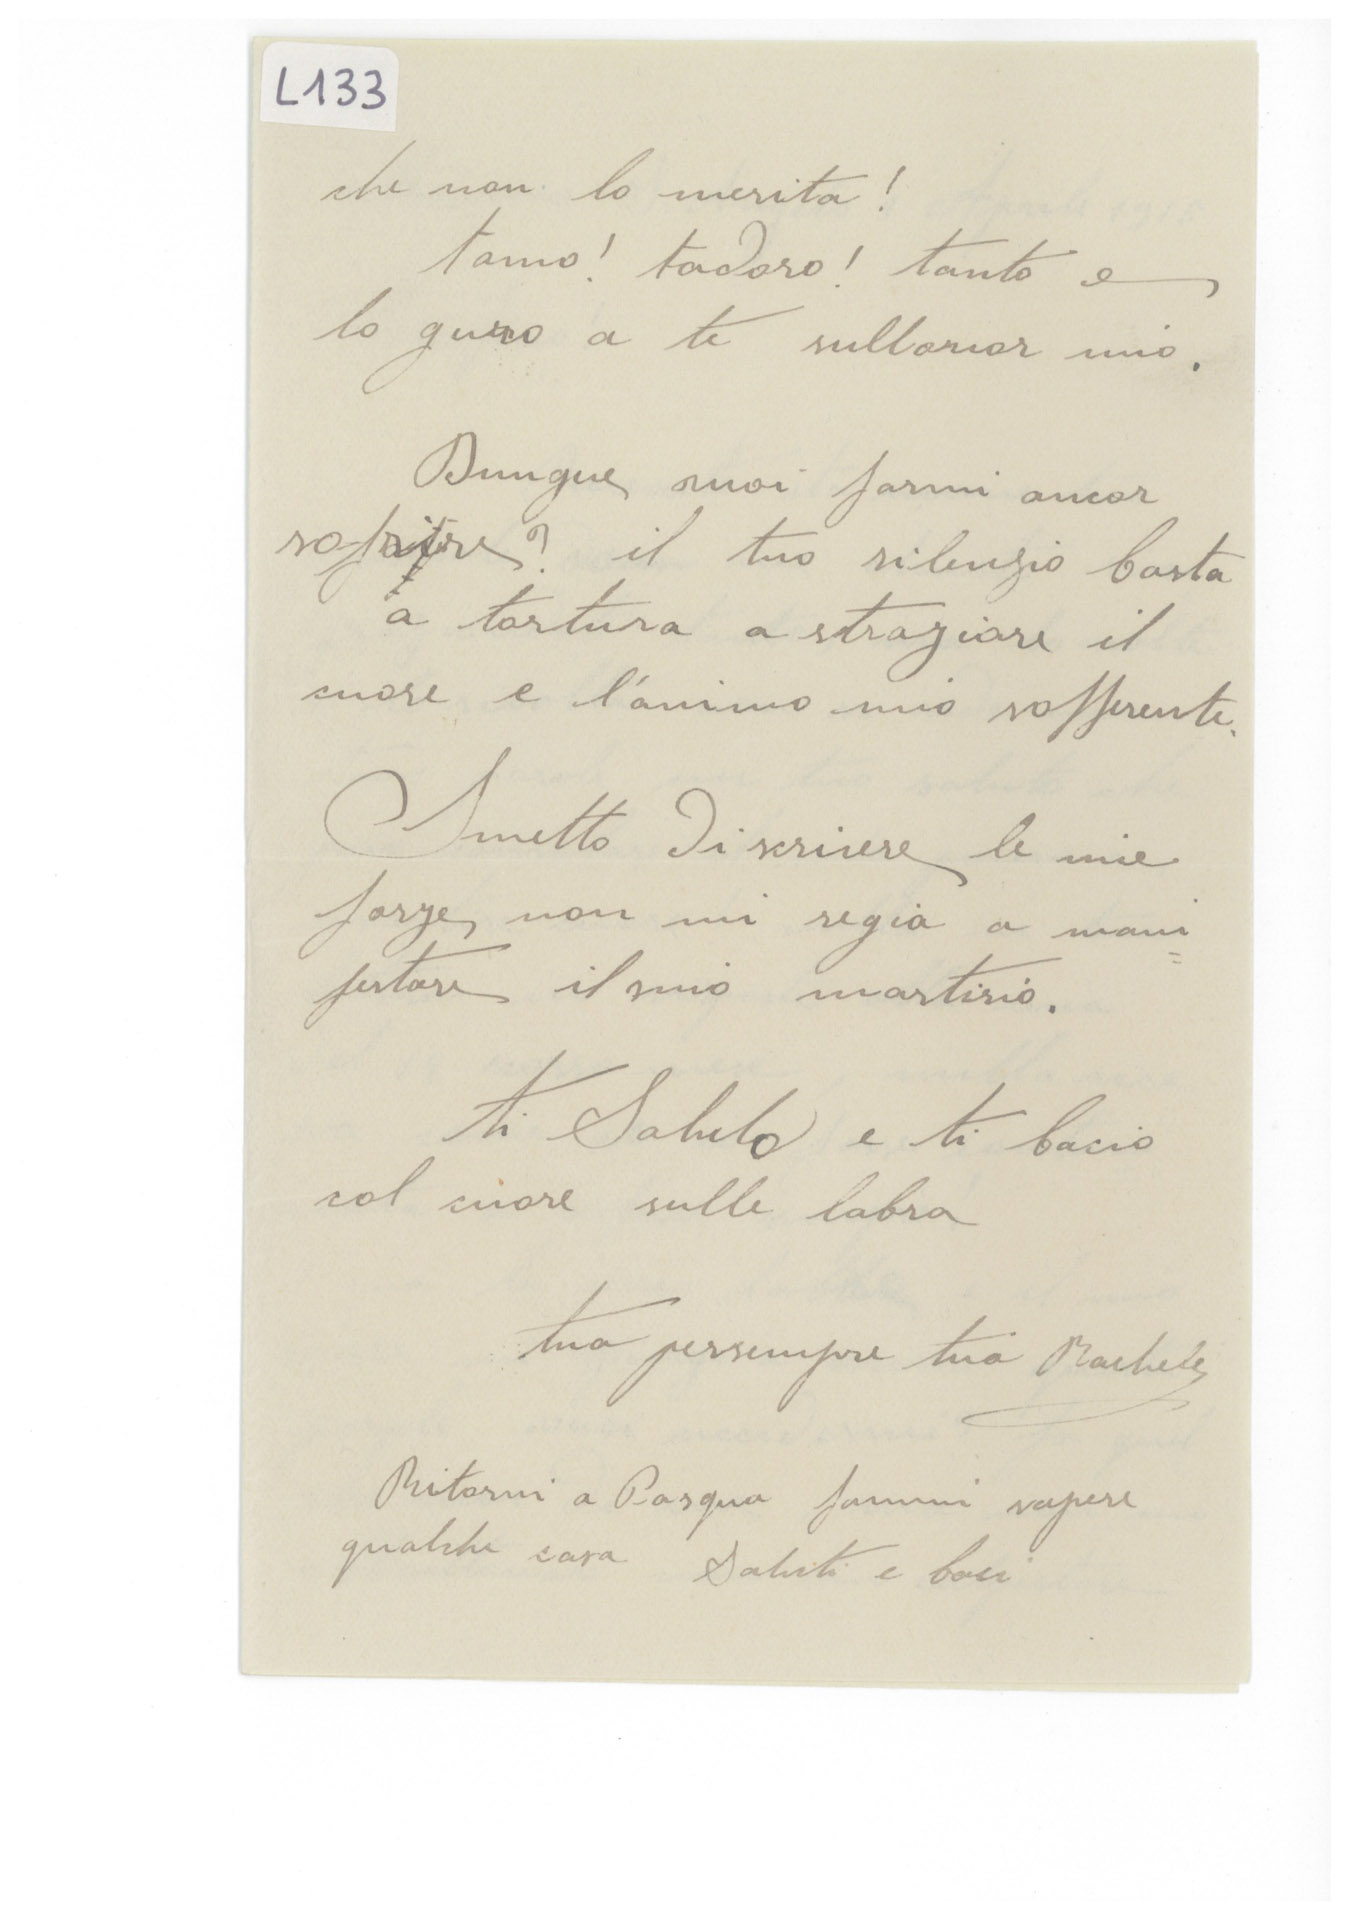 L133
che non lo merita!
tamo! tadoro! tanto e
lo guro a te sullamor mio.
Dunque, vuoi farmi ancor
soffrire? il tuo silenzio basta
a tortura a straziare il
cuore e l'animo mio sofferente.
Smetto di scrivere le mie
forze, non mi regia a mani
festare il mio martirio.
ti Saluto e ti bacio
col cuore sulle labra
tua persempre tua Rachele
Ritorni a Pasqua fammi sapere
qualche cosa Saluti e baci